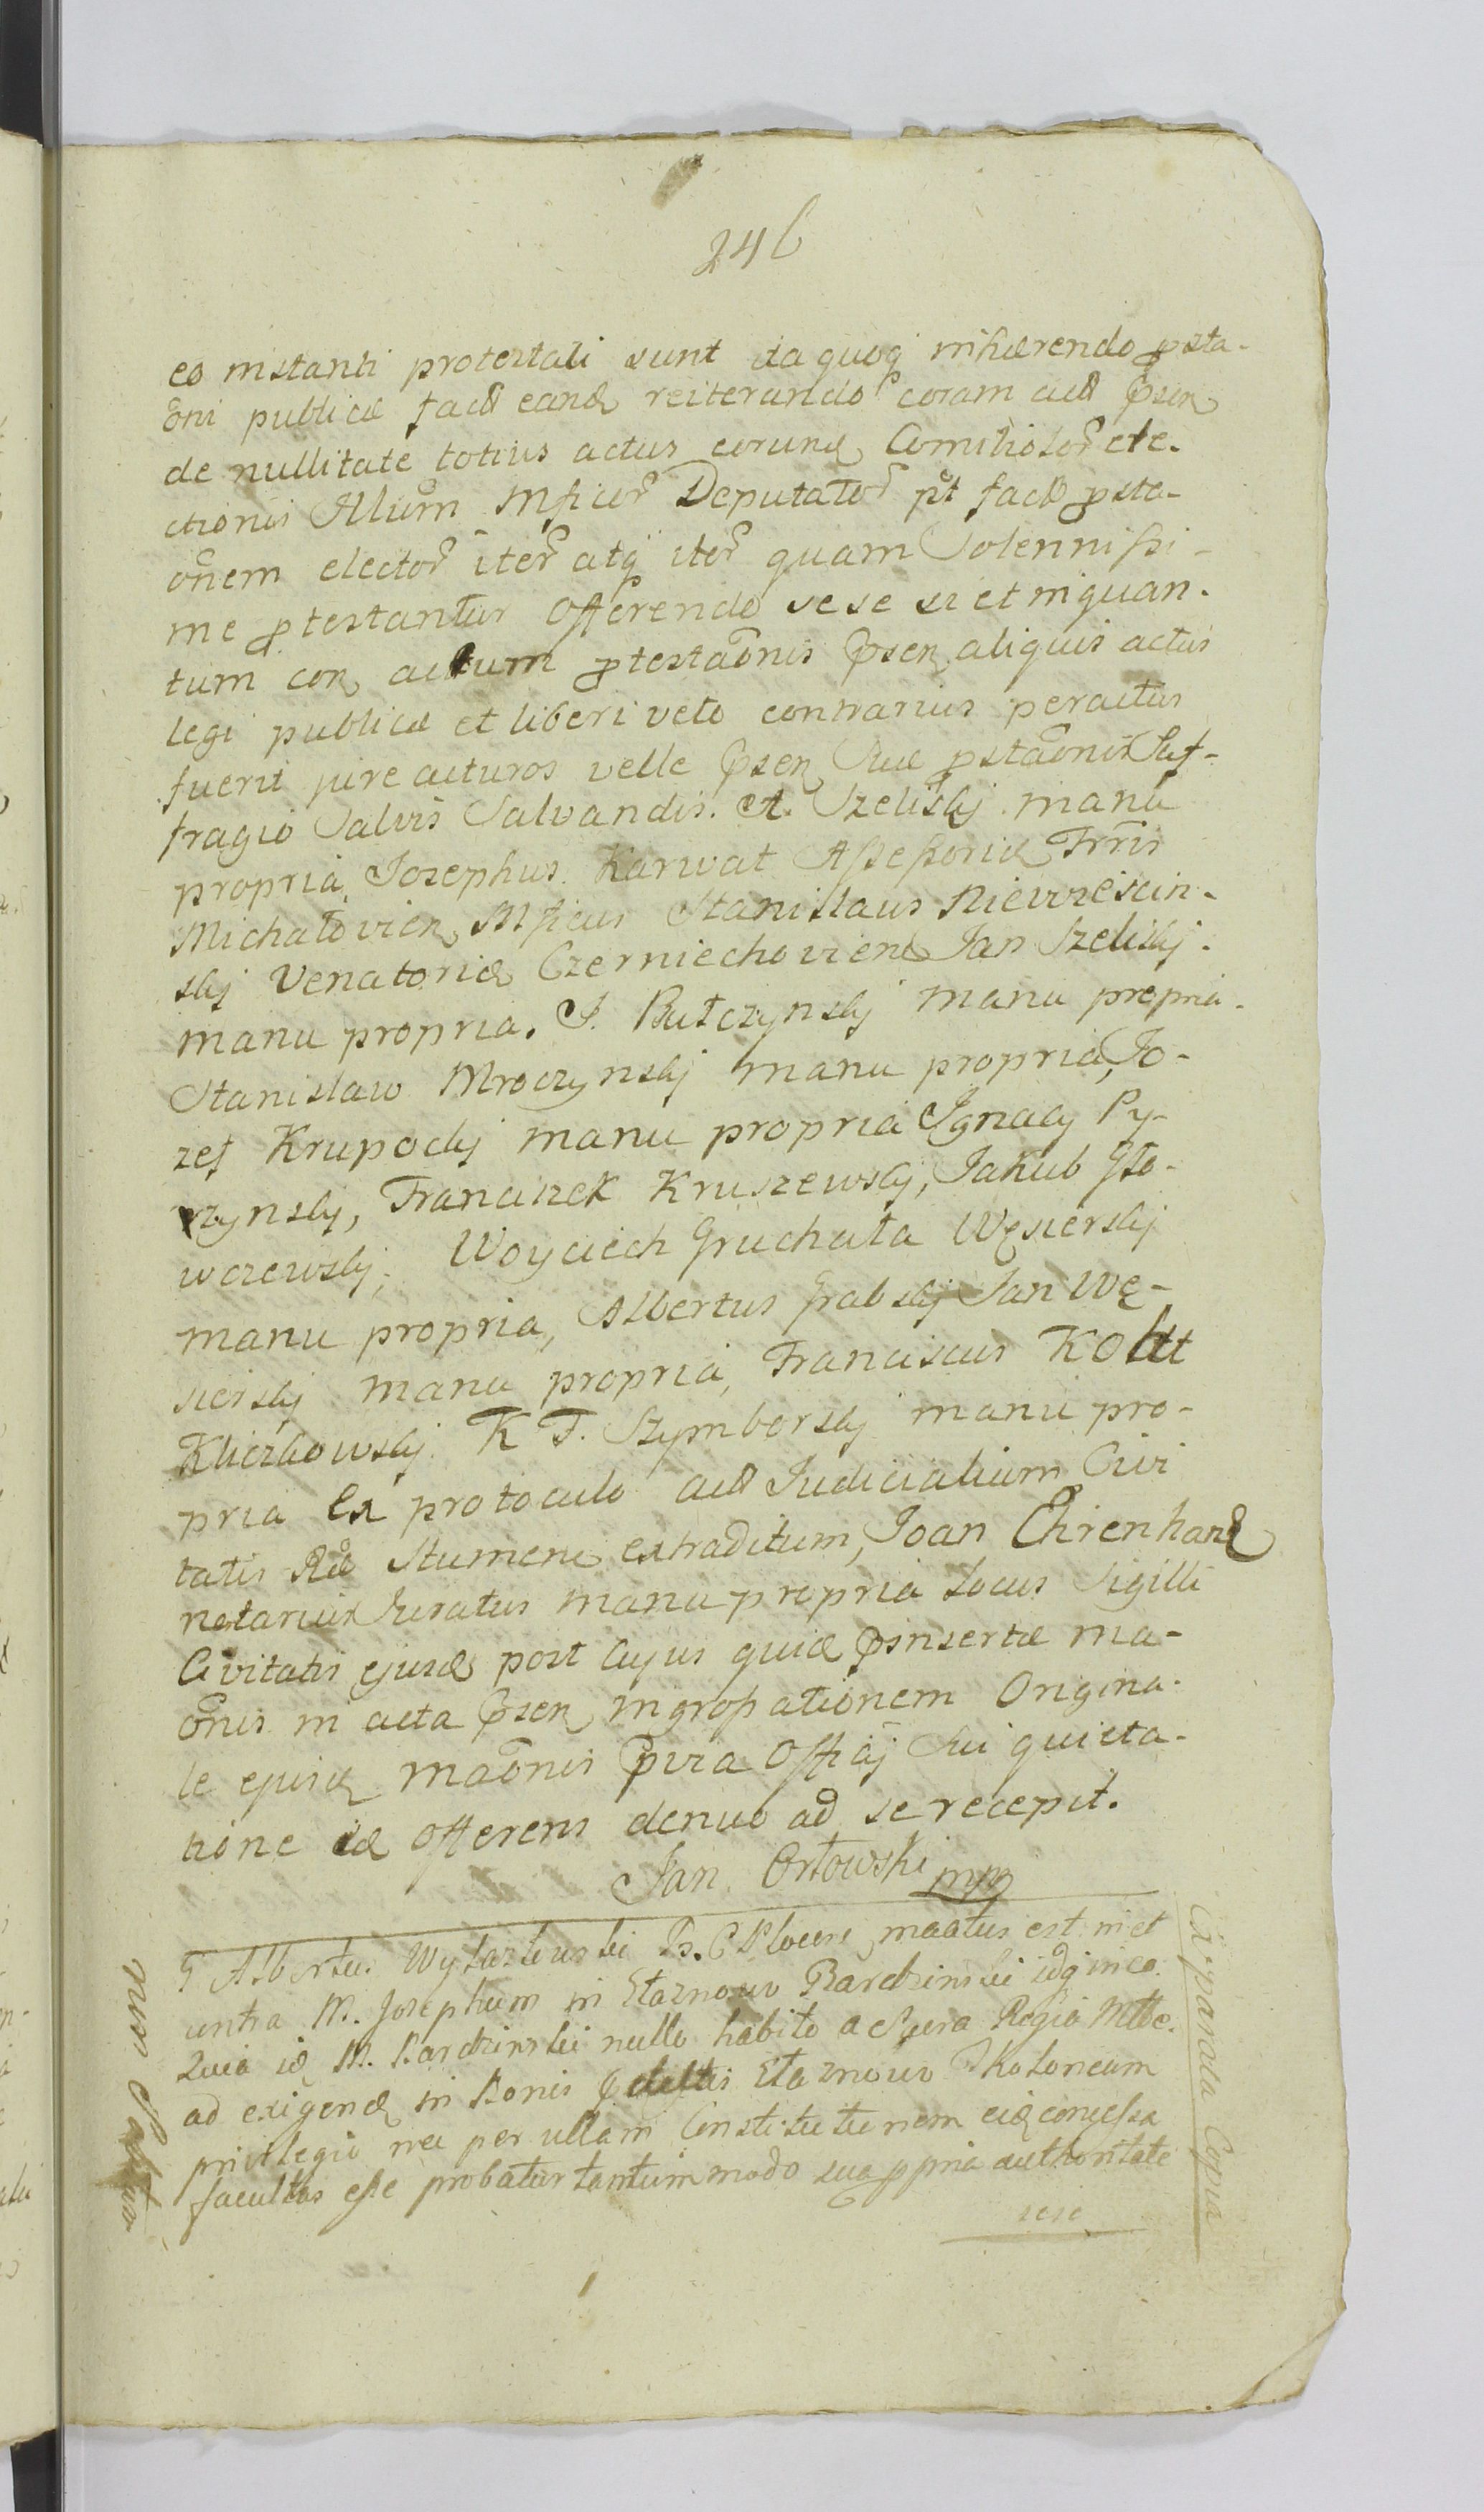 246
eo instanti protestati sunt itaquoq inhærendo prsta-
oni publicæ factæ eand reiterando coram actis psen
de nullitate totius actus eorund Comitiolor ele-
ctionis Illum Mficor Deputator pt facto prsta-
onem elector iter atq iter quam Solennissi-
me protestantur Offerendo sese si et in quan-
tum con actum protestaonis psen aliquis actus
legi publicæ et liberi veto contrarius peractus
fuerit jure acturos velle psen Suæ prstaonis Suf-
fragio Salvis Salvandis. A. Szeliskj manu
propria, Josephus Karwat Assessoriæ Trris
Michałovien, Mficus Stanislaus Niewiescin-
skj Venatoriæ Czerniechoviens Jan Szeliskj
manu propria. J. Butczynskj manu propria.
Stanislaw Mroczynskj manu propria, Jo-
zef Krupockj manu propria Jgnacy Py-
rzynskj, Franciszek Kruszewskj, Jakub Gło-
wczewskj, Woyciech Gruchała Węsierskj
manu propria, Albertus Grabskj Jan Wę-
sierskj manu propria, Franciscus Koltt
Kliczkowskj. K T. Szymborskj manu pro-
pria Ex protoculo act Judicialium Civi
tatis Ræ Stumens extraditum, Joan Ehrenhard
notarius Juratus manu propria Locus Sigilli
Civitatis ejusd post Cujus quid psinsertæ ma-
onis in acta psen ingrossationem Origina-
le ejusd maonis pura Offij Sui quieta-
tione id Offerens denuo ad se recepit.
Jan Orłowski mp
G Albertus Wytarzewski B. C Plocens, maatus est in et
contra M. Josephum in Starnowo Bardzinski idq in eo
Quia id M. Bardzinski nullo habito a Sacra Regia Mtte.
ad exigend in Bonis Starnowo Kotoneum
privilegio nec per ullam Constitutionem eid concessa
facultas esse probatur tantummodo sua ppria authoritate
sese
Expanda Copia